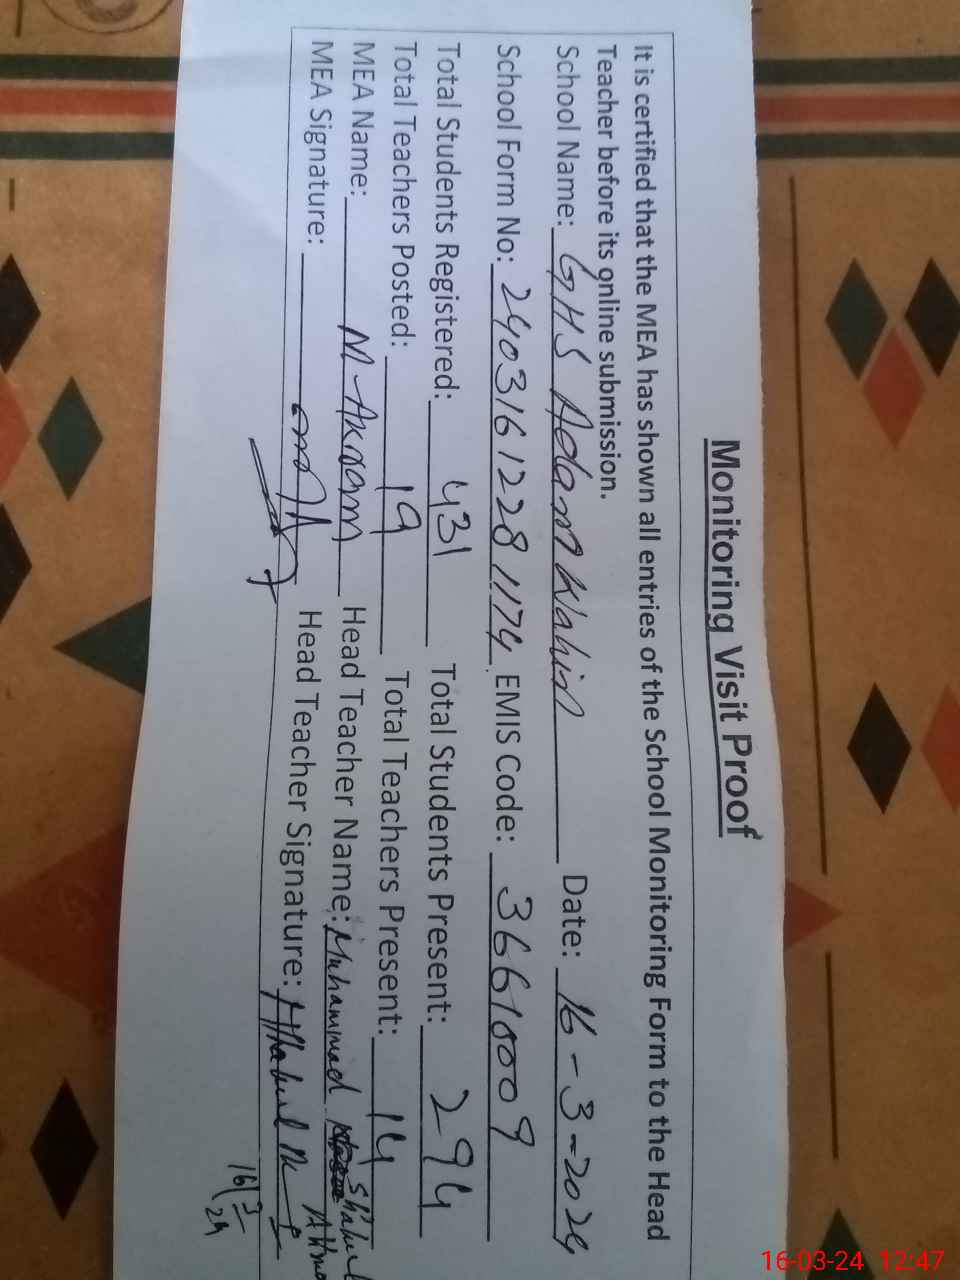 Monitoring Visit Proof
It is certified that the MEA has shown all entries of the School Monitoring Form to the Head
Teacher before its online submission.
School Name: GHS Adam Wahin Date: 16-3-2024
School Form No: 2403161228 1174 EMIS Code: 36610009
Total Students Registered: 431 Total Students Present: 294
Total Teachers Posted: 19 Total Teachers Present: 14
MEA Name: M-Akram Head Teacher Name: Muhammad Shakeel
MEA Signature: Head Teacher Signature:
16/3/24
16-03-24 12:47